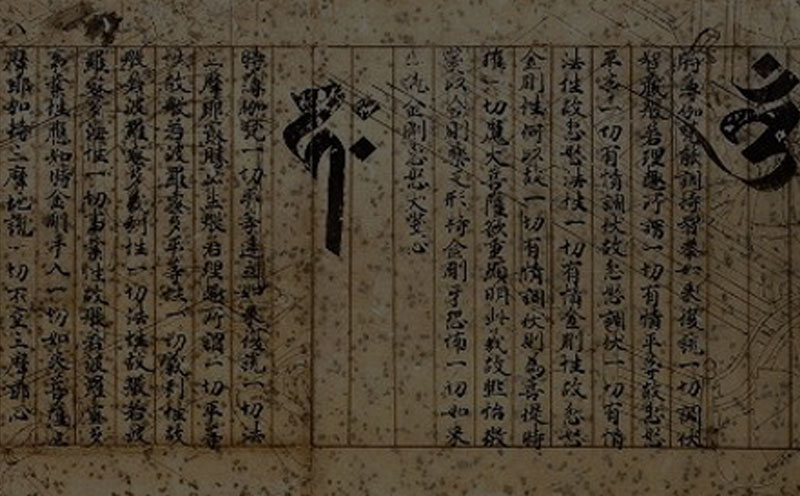 時薄伽梵能調持智拳如來復說一切調伏
智藏般若理趣所謂一切有情平等故忿怒
平等一切有情調伏故忿怒調伏一切有情
法性故忿怒法性一切有情金剛性故忿怒
金剛性何以故一切有情調伏則為菩提時
摧一切魔大菩薩欲重顯明此義故熙怡微
笑以金剛藥叉形持金剛牙恐怖一切如來
已說金剛忿怒大笑心
時薄伽梵一切平等建立如來復說一切法
三摩耶最勝出生般若理趣所謂一切平等
性故般若波羅蜜多平等性一切義利性故
般若波羅蜜多義利性一切法性故般若波
羅蜜多法性一切事業性故般若波羅蜜多
事業性應知時金剛手入一切如來菩薩三
摩耶加持三摩地說一切不空三摩耶心